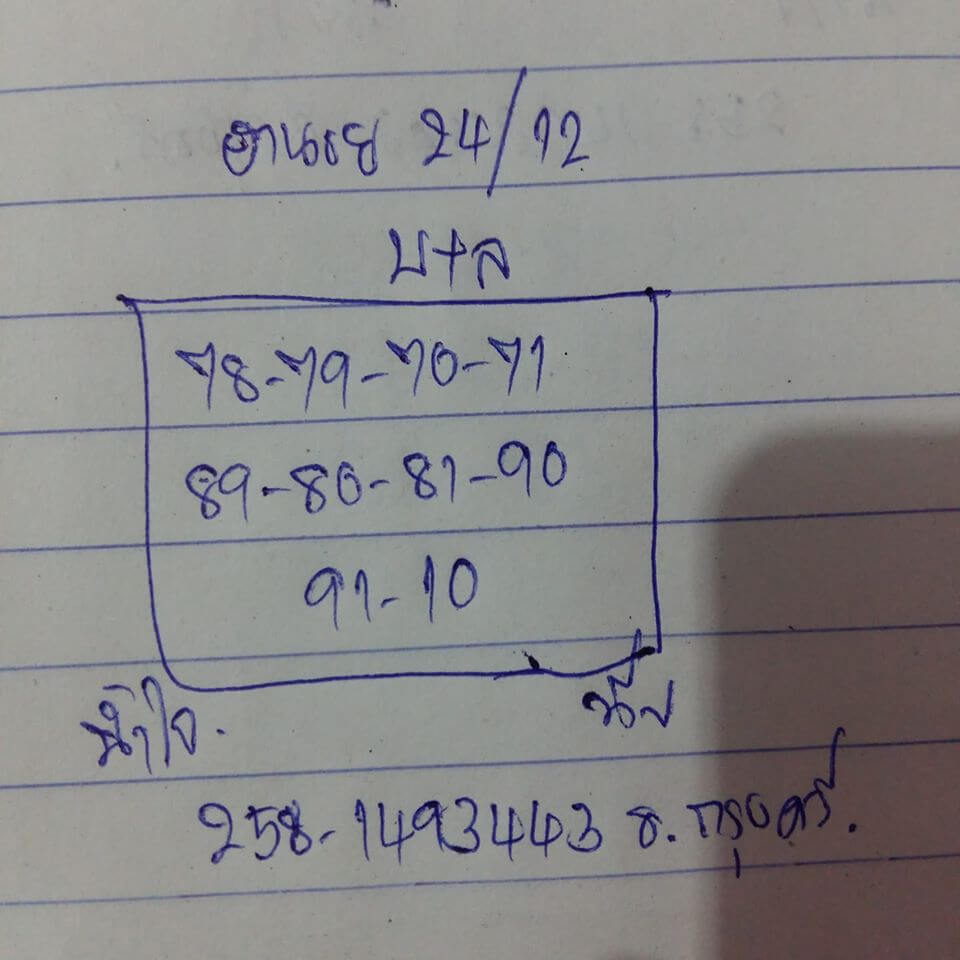 ฮานอย 24/12
บ+ล
78-79-70-71
89-80-81-90
91-10
น้ำใจ.
258-1493443 ธ. กรุงศรี.